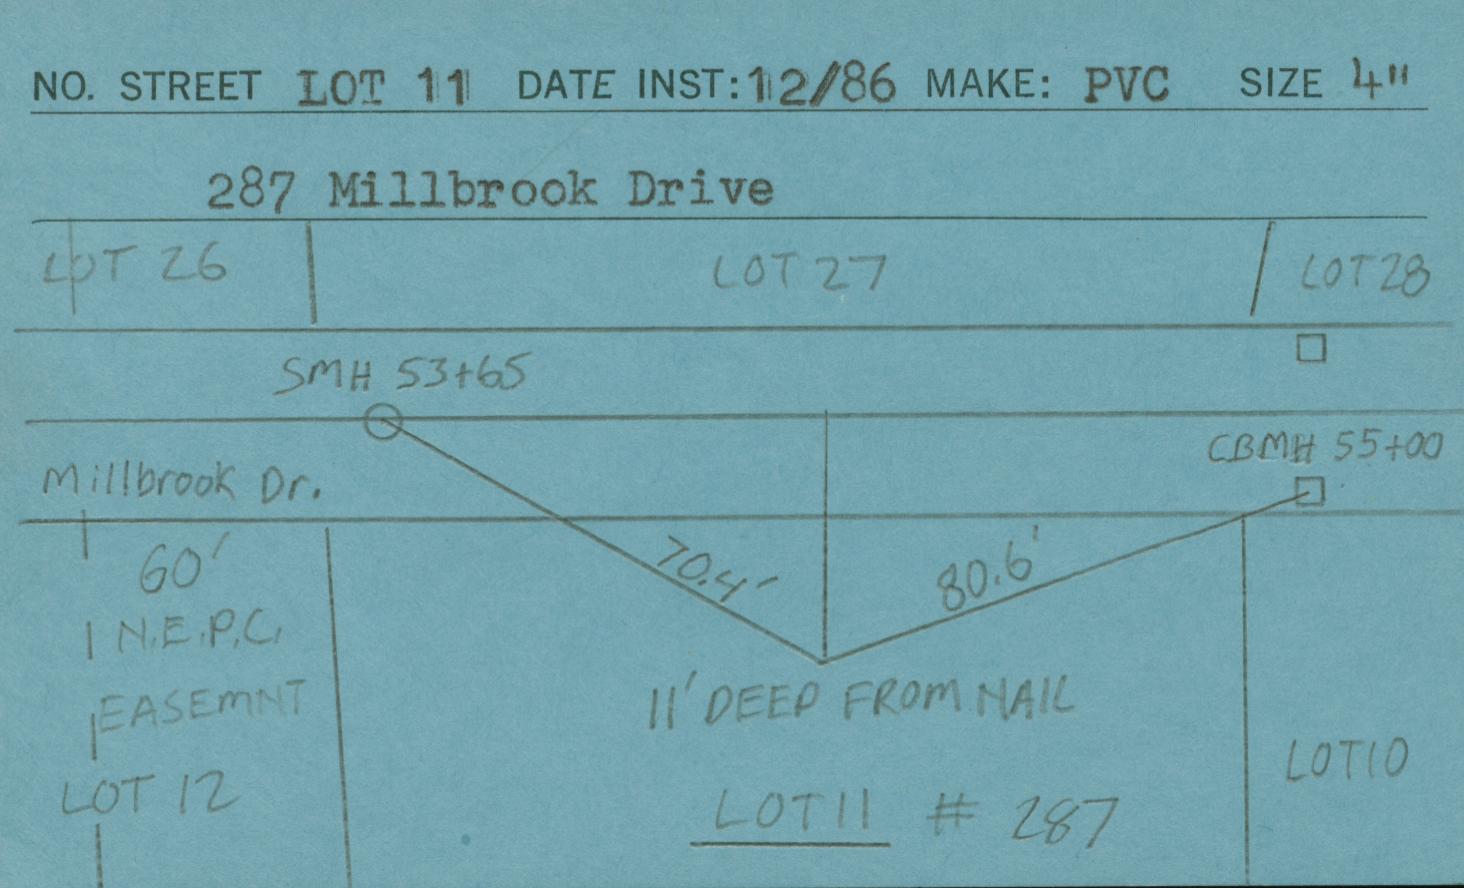 NO. STREET LOT 11 DATE INST: 12/86 MAKE: PVC SIZE 4"
287 Millbrook Drive
LOT 26 LOT 27 LOT 28
SMH 53+65
CBMH 55+00
Millbrook Dr.
60'
70.4'
80.6'
N.E.P.C.
EASEMNT
11' DEEP FROM NAIL
LOT 12
LOT 10
LOT 11 # 287